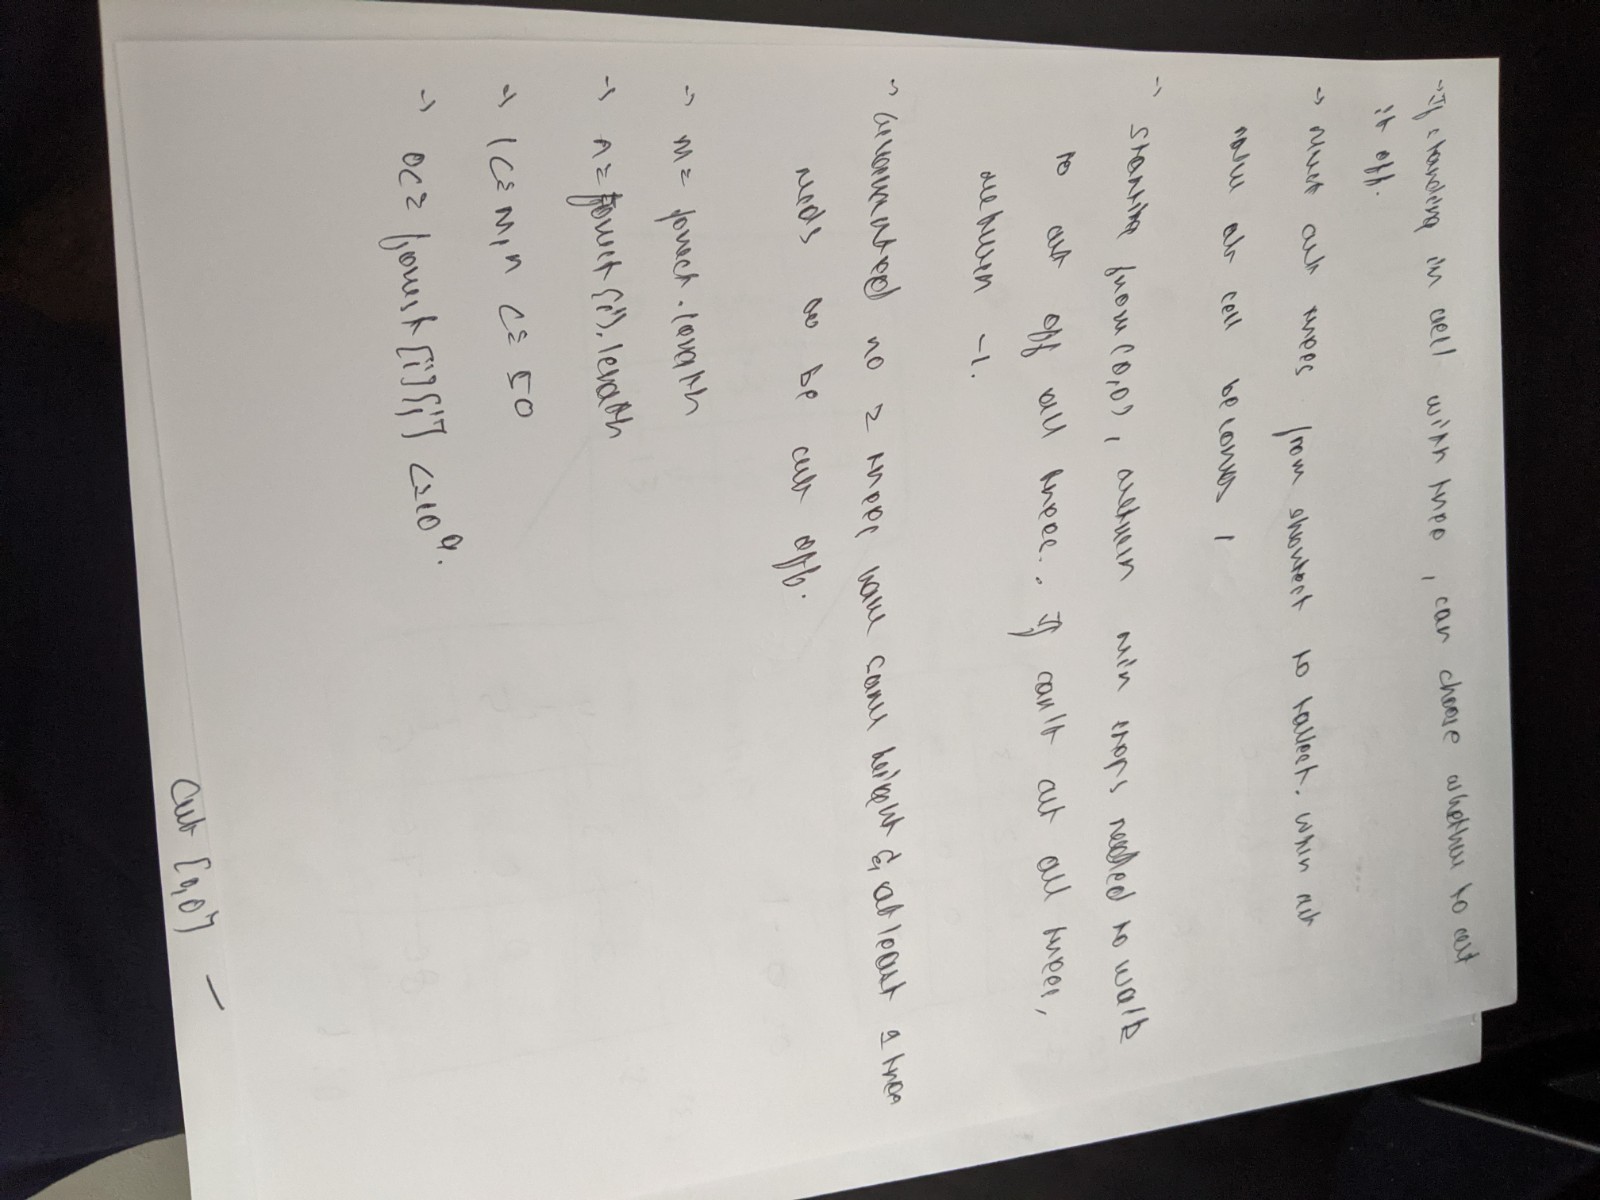 → If standing in cell with tree, can choose whether to cut
it off.
→ Must cut trees from shortest to tallest. When cut
value at cell becomes 1
→ Starting from (0,0), return min steps needed to walk
to cut off all trees. If can't cut all trees,
return -1.
→ Guaranteed no 2 trees have same height & at least 1 tree
needs to be cut off.
→ m = forest.length
→ n = forest[i].length
→ 1 <= m, n <= 50
→ 0 <= forest[i][j] <= 10⁹.
Cut [0,0] —